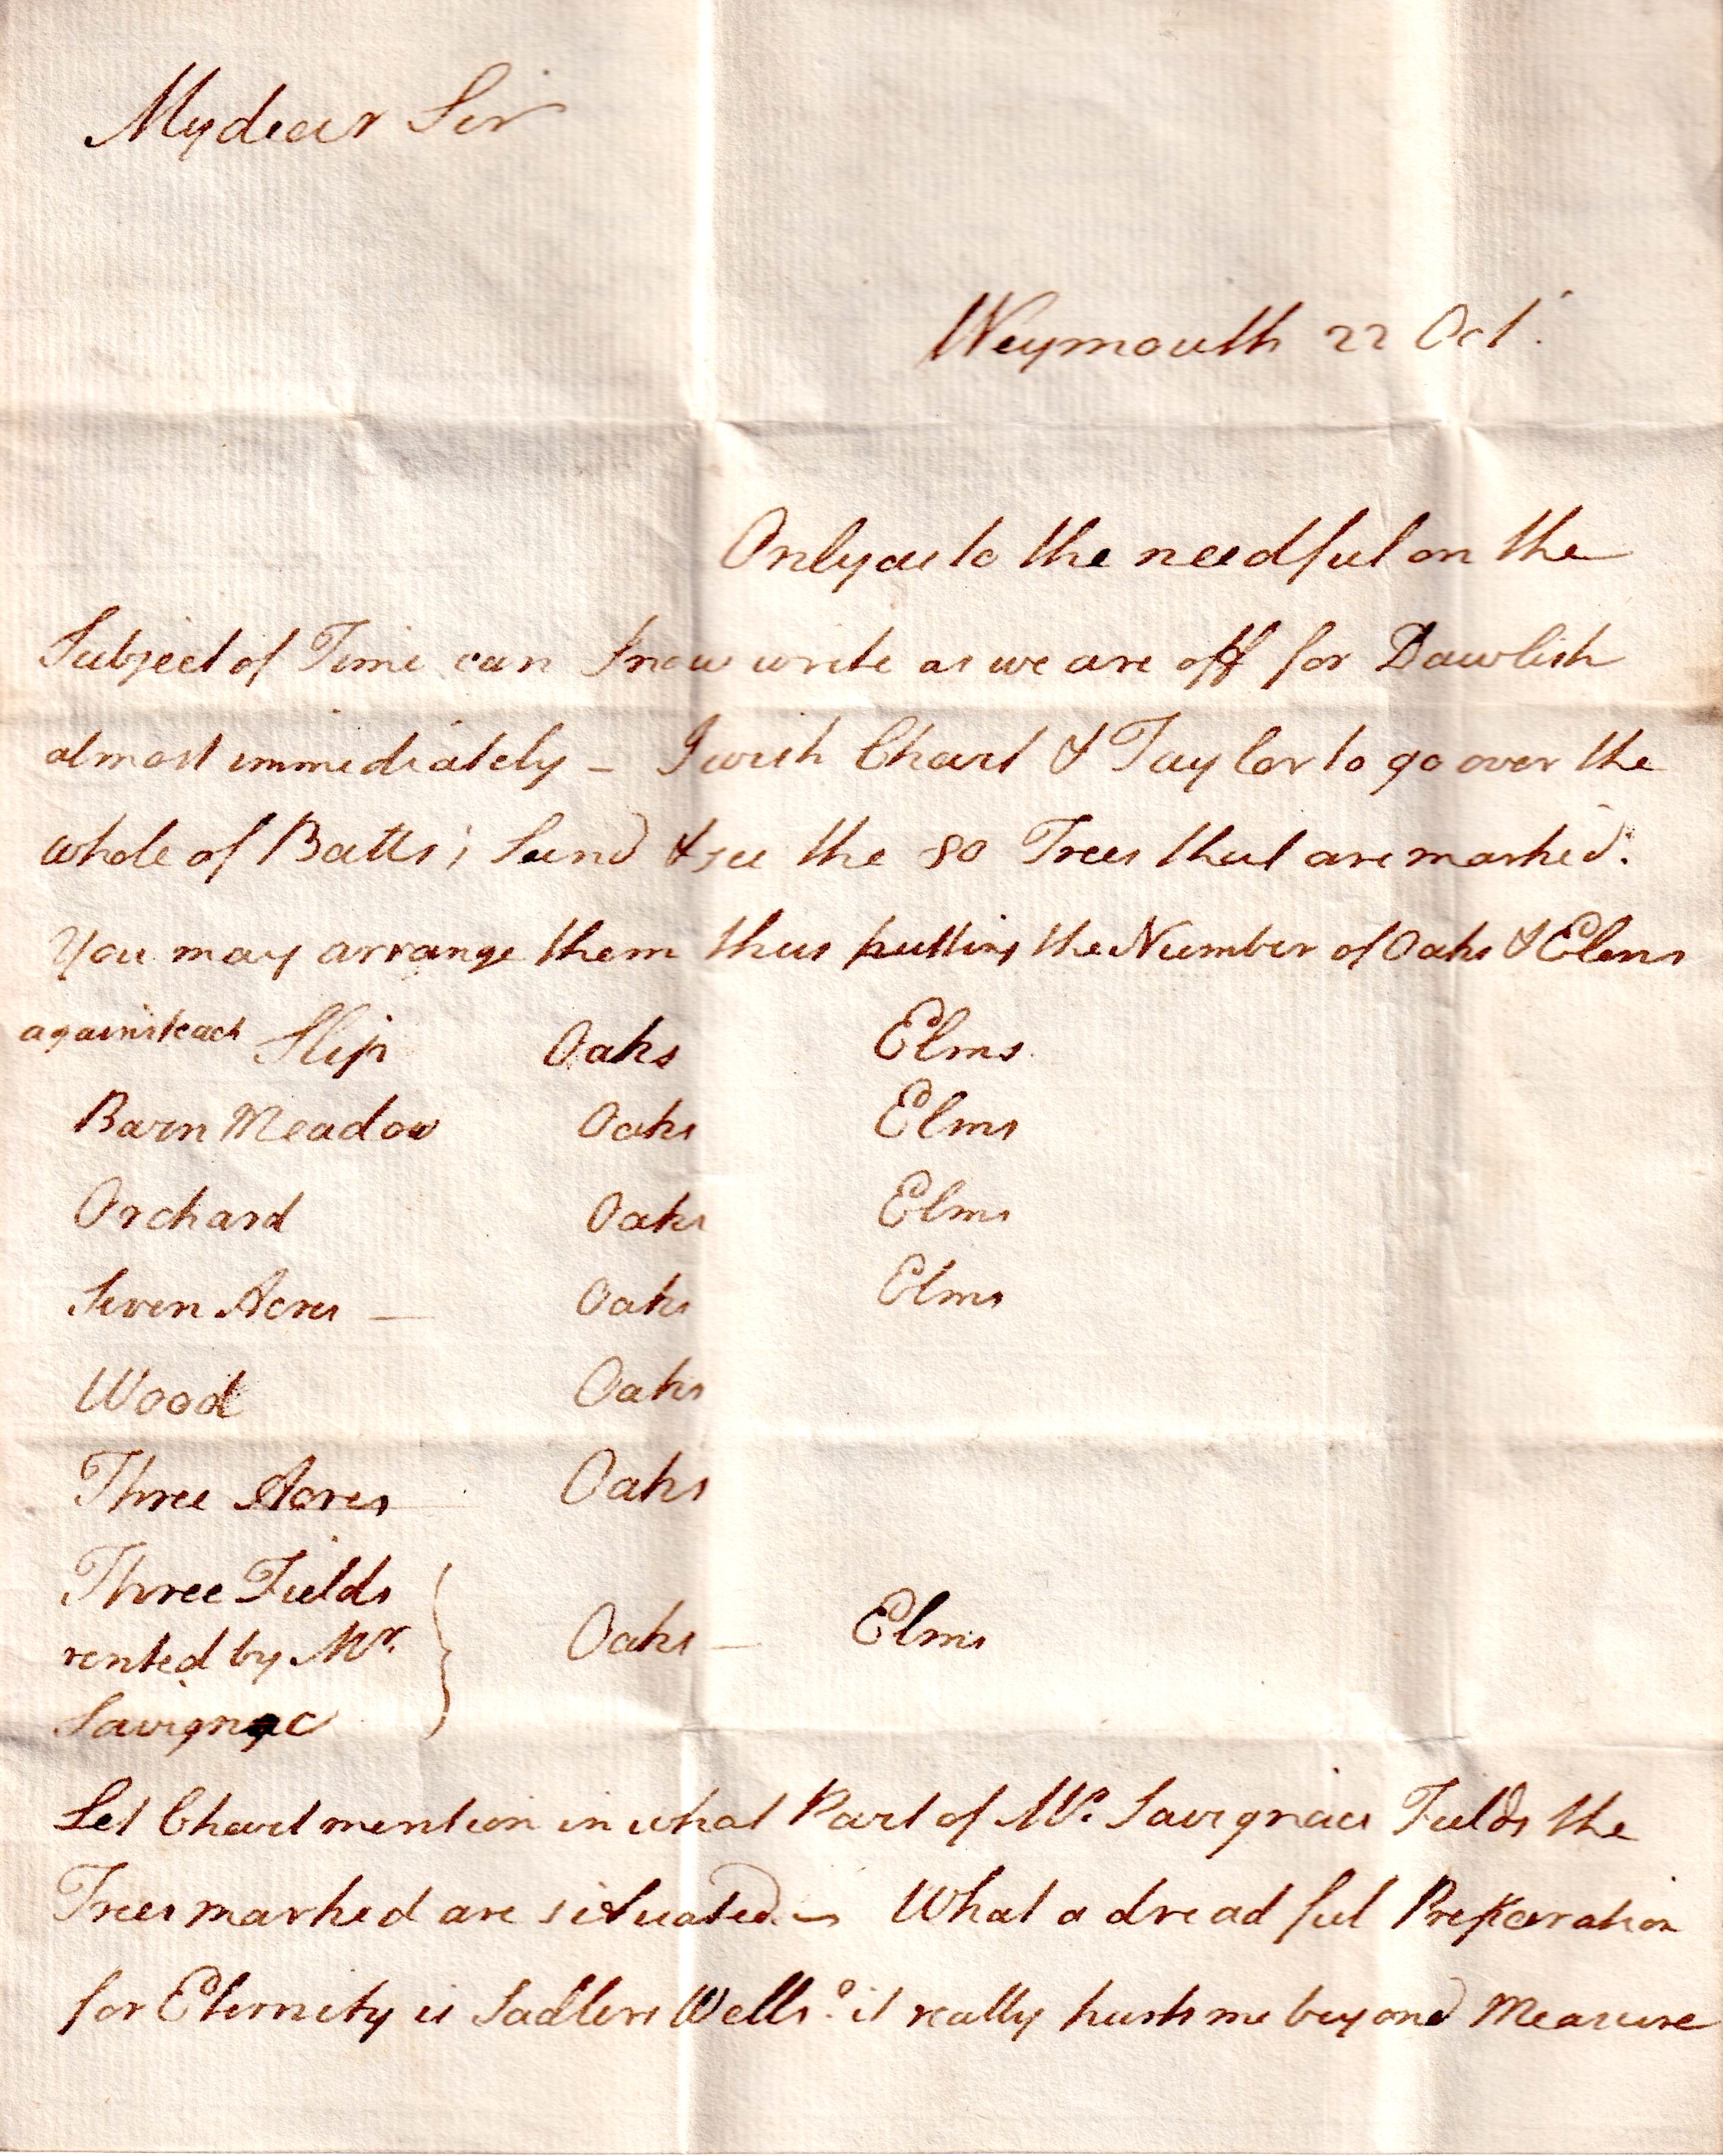 My dear Sir
Weymouth 22 Oct.
Only as to the needful on the
Subject of Time can I now write as we are off for Dawlish
almost immediately – I wish Chart & Taylor to go over the
whole of Batts's Land & see the 80 Trees that are marked.
You may arrange them thus putting the Number of Oaks & Elms
against each Slip Oaks Elms
Barn Meadow Oaks Elms
Orchard Oaks Elms
Seven Acres — Oaks Elms
Wood Oaks
Three Acres Oaks
Three Fields
rented by Mr. Oaks — Elms
Savignac
Let Chart mention in what Part of Mr. Savignacs Fields the
Trees marked are situated. – What a dreadful Preparation
for Eternity is Sadlers Wells! it really hurts me beyond Measure